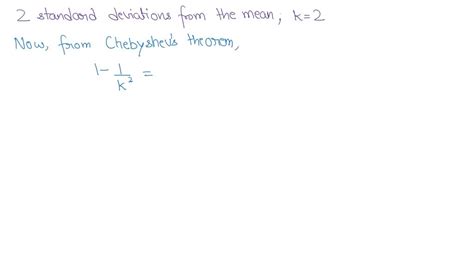 2 standard deviations from the mean, k=2
Now, from Chebyshev's theorem,
1 - 1/k² =